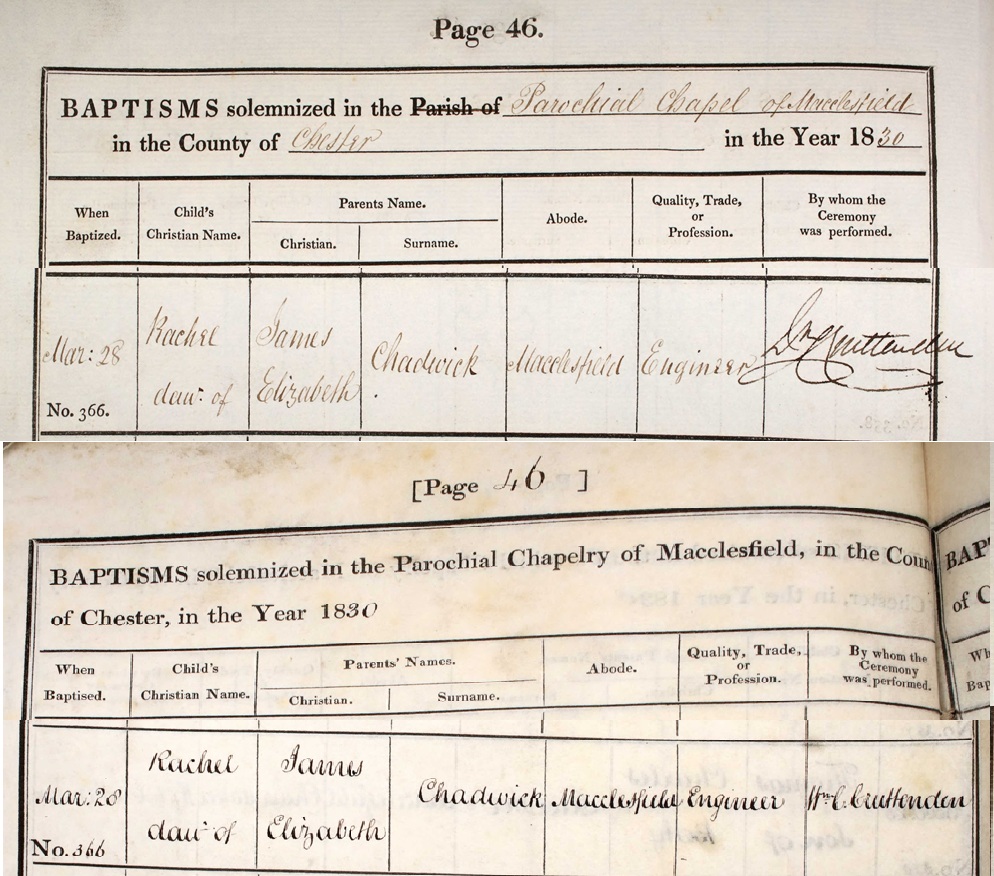 Page 46.
BAPTISMS solemnized in the Parish of Parochial Chapel of Macclesfield
in the County of Chester in the Year 1830
When Baptized.
Child's Christian Name.
Parents Name.
Christian.
Surname.
Abode.
Quality, Trade, or Profession.
By whom the Ceremony was performed.
Mar: 28
No. 366.
Rachel
daur of
James
Elizabeth
Chadwick
Macclesfield
Engineer
Cruttenden
[Page 46 ]
BAPTISMS solemnized in the Parochial Chapelry of Macclesfield, in the Coun
of Chester, in the Year 1830
When Baptised.
Child's Christian Name.
Parents' Names.
Christian.
Surname.
Abode.
Quality, Trade, or Profession.
By whom the Ceremony was performed.
Mar: 28
No. 366
Rachel
daur of
James
Elizabeth
Chadwick
Macclesfield
Engineer
Wm C. Cruttenden
BAP
of C
Wh
Bap